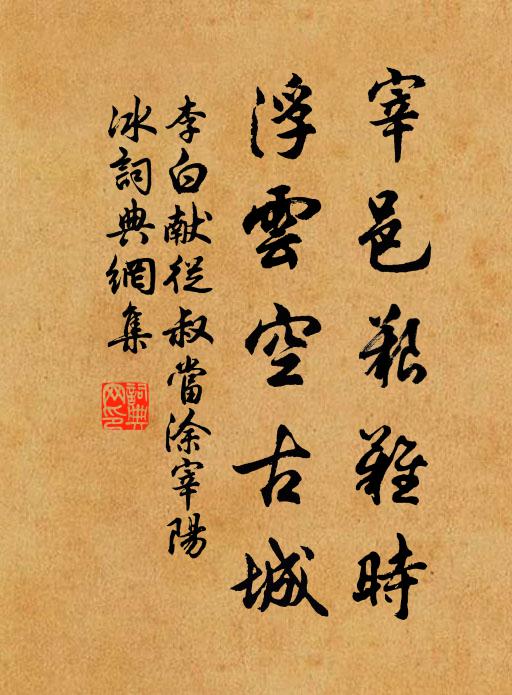 宰邑艱難時
浮雲空古城
李白献從叔當涂宰陽
冰詞典網集
詞典網印